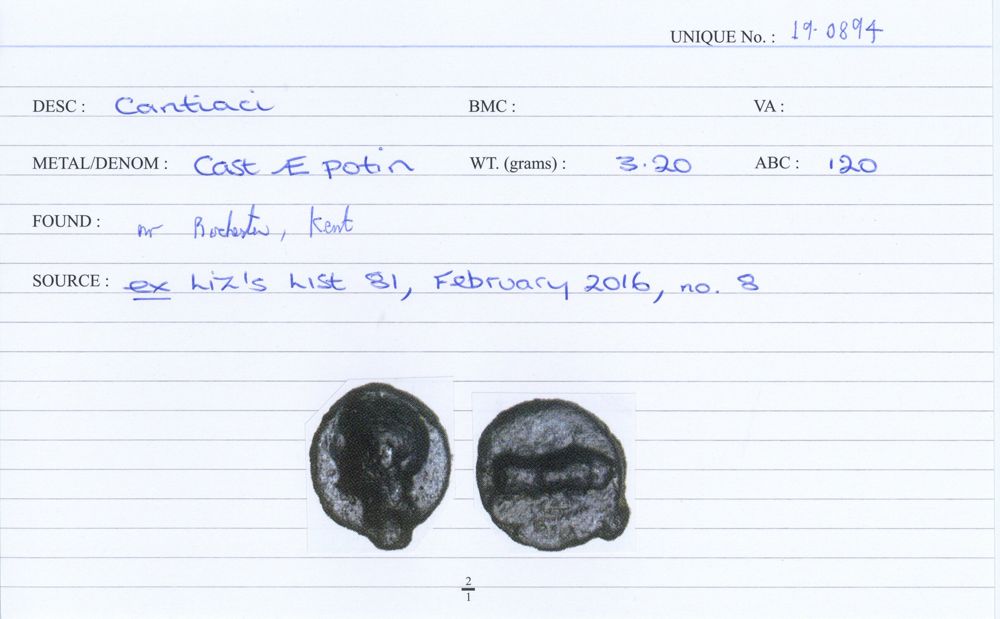 UNIQUE No. : 19.0894
DESC : Cantiaci BMC : VA :
METAL/DENOM : Cast Æ potin WT. (grams) : 3.20 ABC : 120
FOUND : nr Rochester, Kent
SOURCE : ex Liz's List 81, February 2016, no. 8
2
1